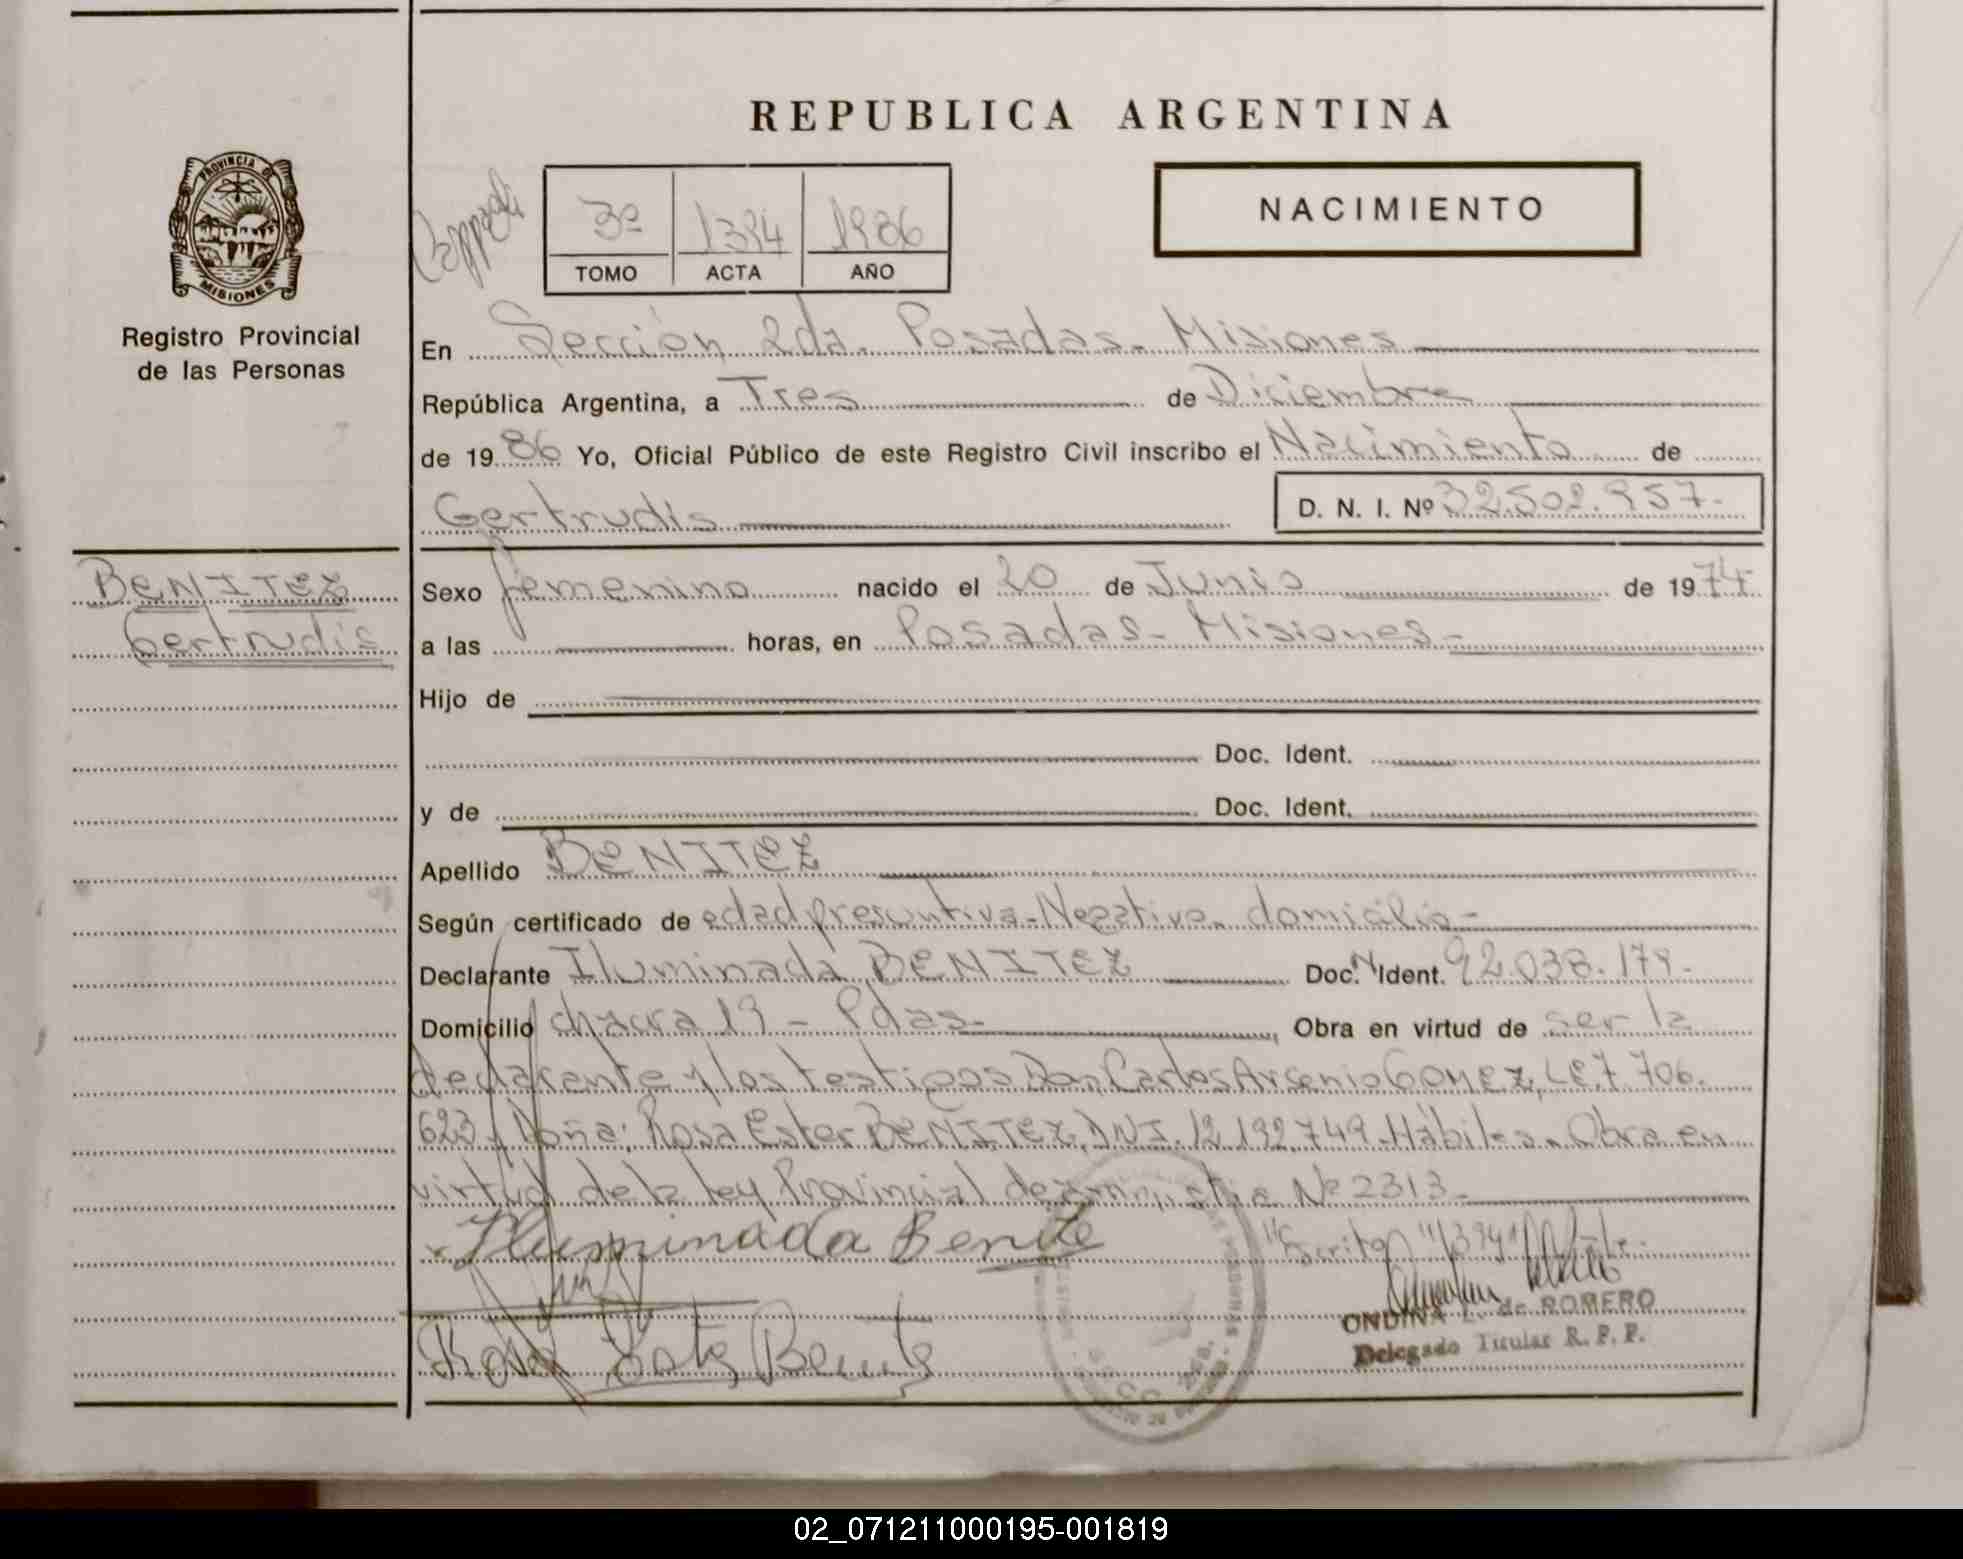 REPUBLICA ARGENTINA
PROVINCIA DE
MISIONES
Registro Provincial
de las Personas
3º 1394 1986
TOMO ACTA AÑO
NACIMIENTO
En Sección 2da. Posadas - Misiones
República Argentina, a Tres de Diciembre
de 1986 Yo, Oficial Público de este Registro Civil inscribo el Nacimiento de
Gertrudis D. N. I. Nº 32.502.957-
BENITEZ
Gertrudis
Sexo femenino nacido el 20 de Junio de 1974-
a las horas, en Posadas - Misiones -
Hijo de
Doc. Ident.
y de Doc. Ident.
Apellido BENITEZ
Según certificado de edad presuntiva - Negativa - domicilio -
Declarante Iluminada BENITEZ Doc. Ident. 92.038.179-
Domicilio chacra 19 - Pdas - Obra en virtud de ser la
declarante y los testigos Don Carlos Arsenio GOMEZ, LE 7.706.
623 y Doña: Rosa Ester BENITEZ, DNI. 12.192.749 - Hábiles - Obra en
virtud de la ley Provincial de amnistía Nº 2313 -
Iluminada Benite
Rosa Ester Benite
ONDINA L. de ROMERO
Delegado Titular R. P. P.
02_071211000195-001819